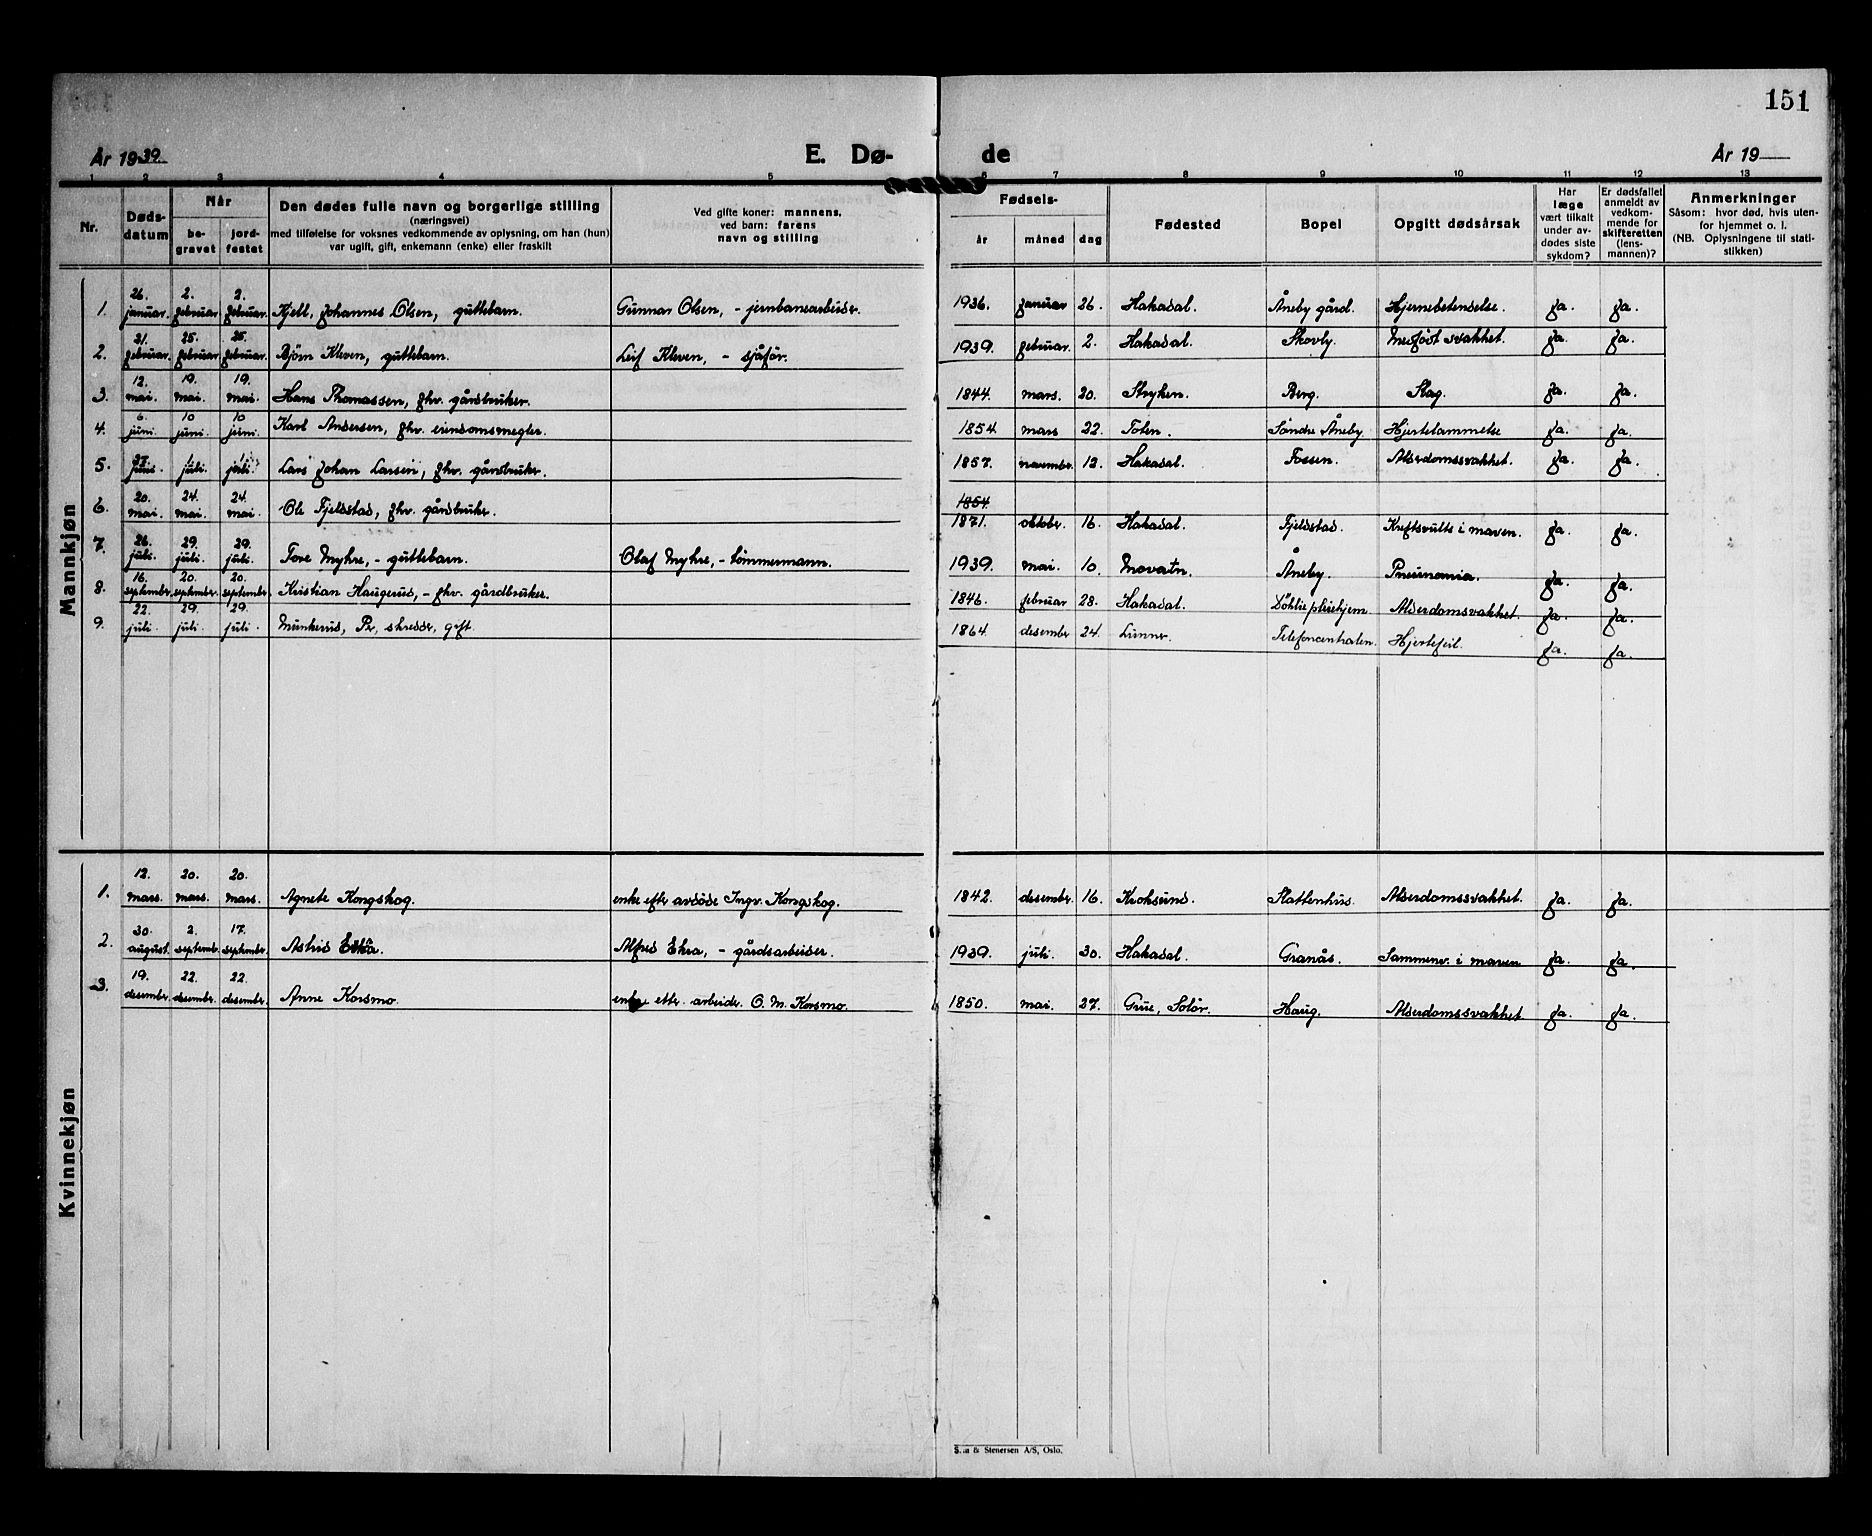 151
År 1939
E. Dø-
de
År 19
1 2 3 4 5 6 7 8 9 10 11 12 13
Nr.
Døds-
datum
Når
be-
gravet
jord-
festet
Den dødes fulle navn og borgerlige stilling
(næringsvei)
med tilføielse for voksnes vedkommende av oplysning, om han (hun)
var ugift, gift, enkemann (enke) eller fraskilt
Ved gifte koner: mannens,
ved barn: farens
navn og stilling
Fødsels-
år
måned
dag
Fødested
Bopel
Opgitt dødsårsak
Har
læge
vært tilkalt
under av-
dødes siste
sykdom?
Er dødsfallet
anmeldt av
vedkom-
mende for
skifteretten
(lens-
mannen)?
Anmerkninger
Såsom: hvor død, hvis uten-
for hjemmet o. l.
(NB. Oplysningene til stati-
stikken)
Mannkjøn
1. 26. januar. 2. februar. 2. februar. Kjell, Johannes Olsen, guttebarn. Gunnar Olsen, - jernbanearbeider. 1936. januar 26. Hakadal. Åneby gård. Hjernebetendelse. Ja. Ja.
2. 21. februar. 25. februar. 25. februar. Bjørn Kleven, guttebarn. Leif Kleven, - sjåfør. 1939. februar. 2. Hakadal. Skovly. Medfødt svakhet. Ja. Ja.
3. 12. mai. 19. mai. 19. mai. Hans Thomassen, fhv. gårdbruker. 1844. mars. 20. Stryken. Berg. Slag. Ja. Ja.
4. 6. juni. 10 juni. 10 juni. Karl Andersen, fhv. eiendomsmegler. 1854. mars 22. Toten. Søndre Åneby. Hjertelammelse Ja. Ja.
5. 27. juni. 1. juli. 1. juli. Lars Johan Larsen, fhv. gårdbruker. 1857. november. 12. Hakadal. Fossen. Alderdomssvakhet. Ja. Ja.
6. 20. mai. 24. mai. 24. mai. Ole Fjeldstad, fhv. gårdbruker. 1854 1871. oktober. 16. Hakadal. Fjeldstad. Kreftsvulst i maven. Ja. Ja.
7. 26. juli. 29. juli. 29. juli. Tore Myhre, - guttebarn. Olaf Myhre, - tømmermann. 1939. mai. 10. Movatn. Åneby. Pneumonia. Ja. Ja.
8. 16. september. 20. september. 20. september. Kristian Haugerud, - fhv. gårdbruker. 1846. februar 28. Hakadal. Døhlie pleiehjem. Alderdomssvakhet. Ja. Ja.
9. 22. juli. 29. juli. 29. juli. Munkerud, Pr, skredder, gift. 1864. desember 24. Lunner. Telefoncentralen. Hjertefeil. Ja. Ja.
Kvinnekjøn
1. 12. mars. 20. mars. 20. mars. Agnete Kongskog. enke efter avdøde Ingv. Kongskog. 1842. desember. 16. Kroksund. Slattenhus. Alderdomssvakhet. Ja. Ja.
2. 30. august. 2. september. 17. september. Astrid Ekra. Alfred Ekra, - gårdsarbeider. 1939. juli. 30. Hakadal. Granås. Sammenv. i maven Ja. Ja.
3. 19. desember. 22. desember. 22. desember. Anne Korsmo. enke etter. arbeider O. M. Korsmo. 1850. mai. 27. Grue, Solør. Haug. Alderdomssvakhet Ja. Ja.
& Stenersen A/S, Oslo.